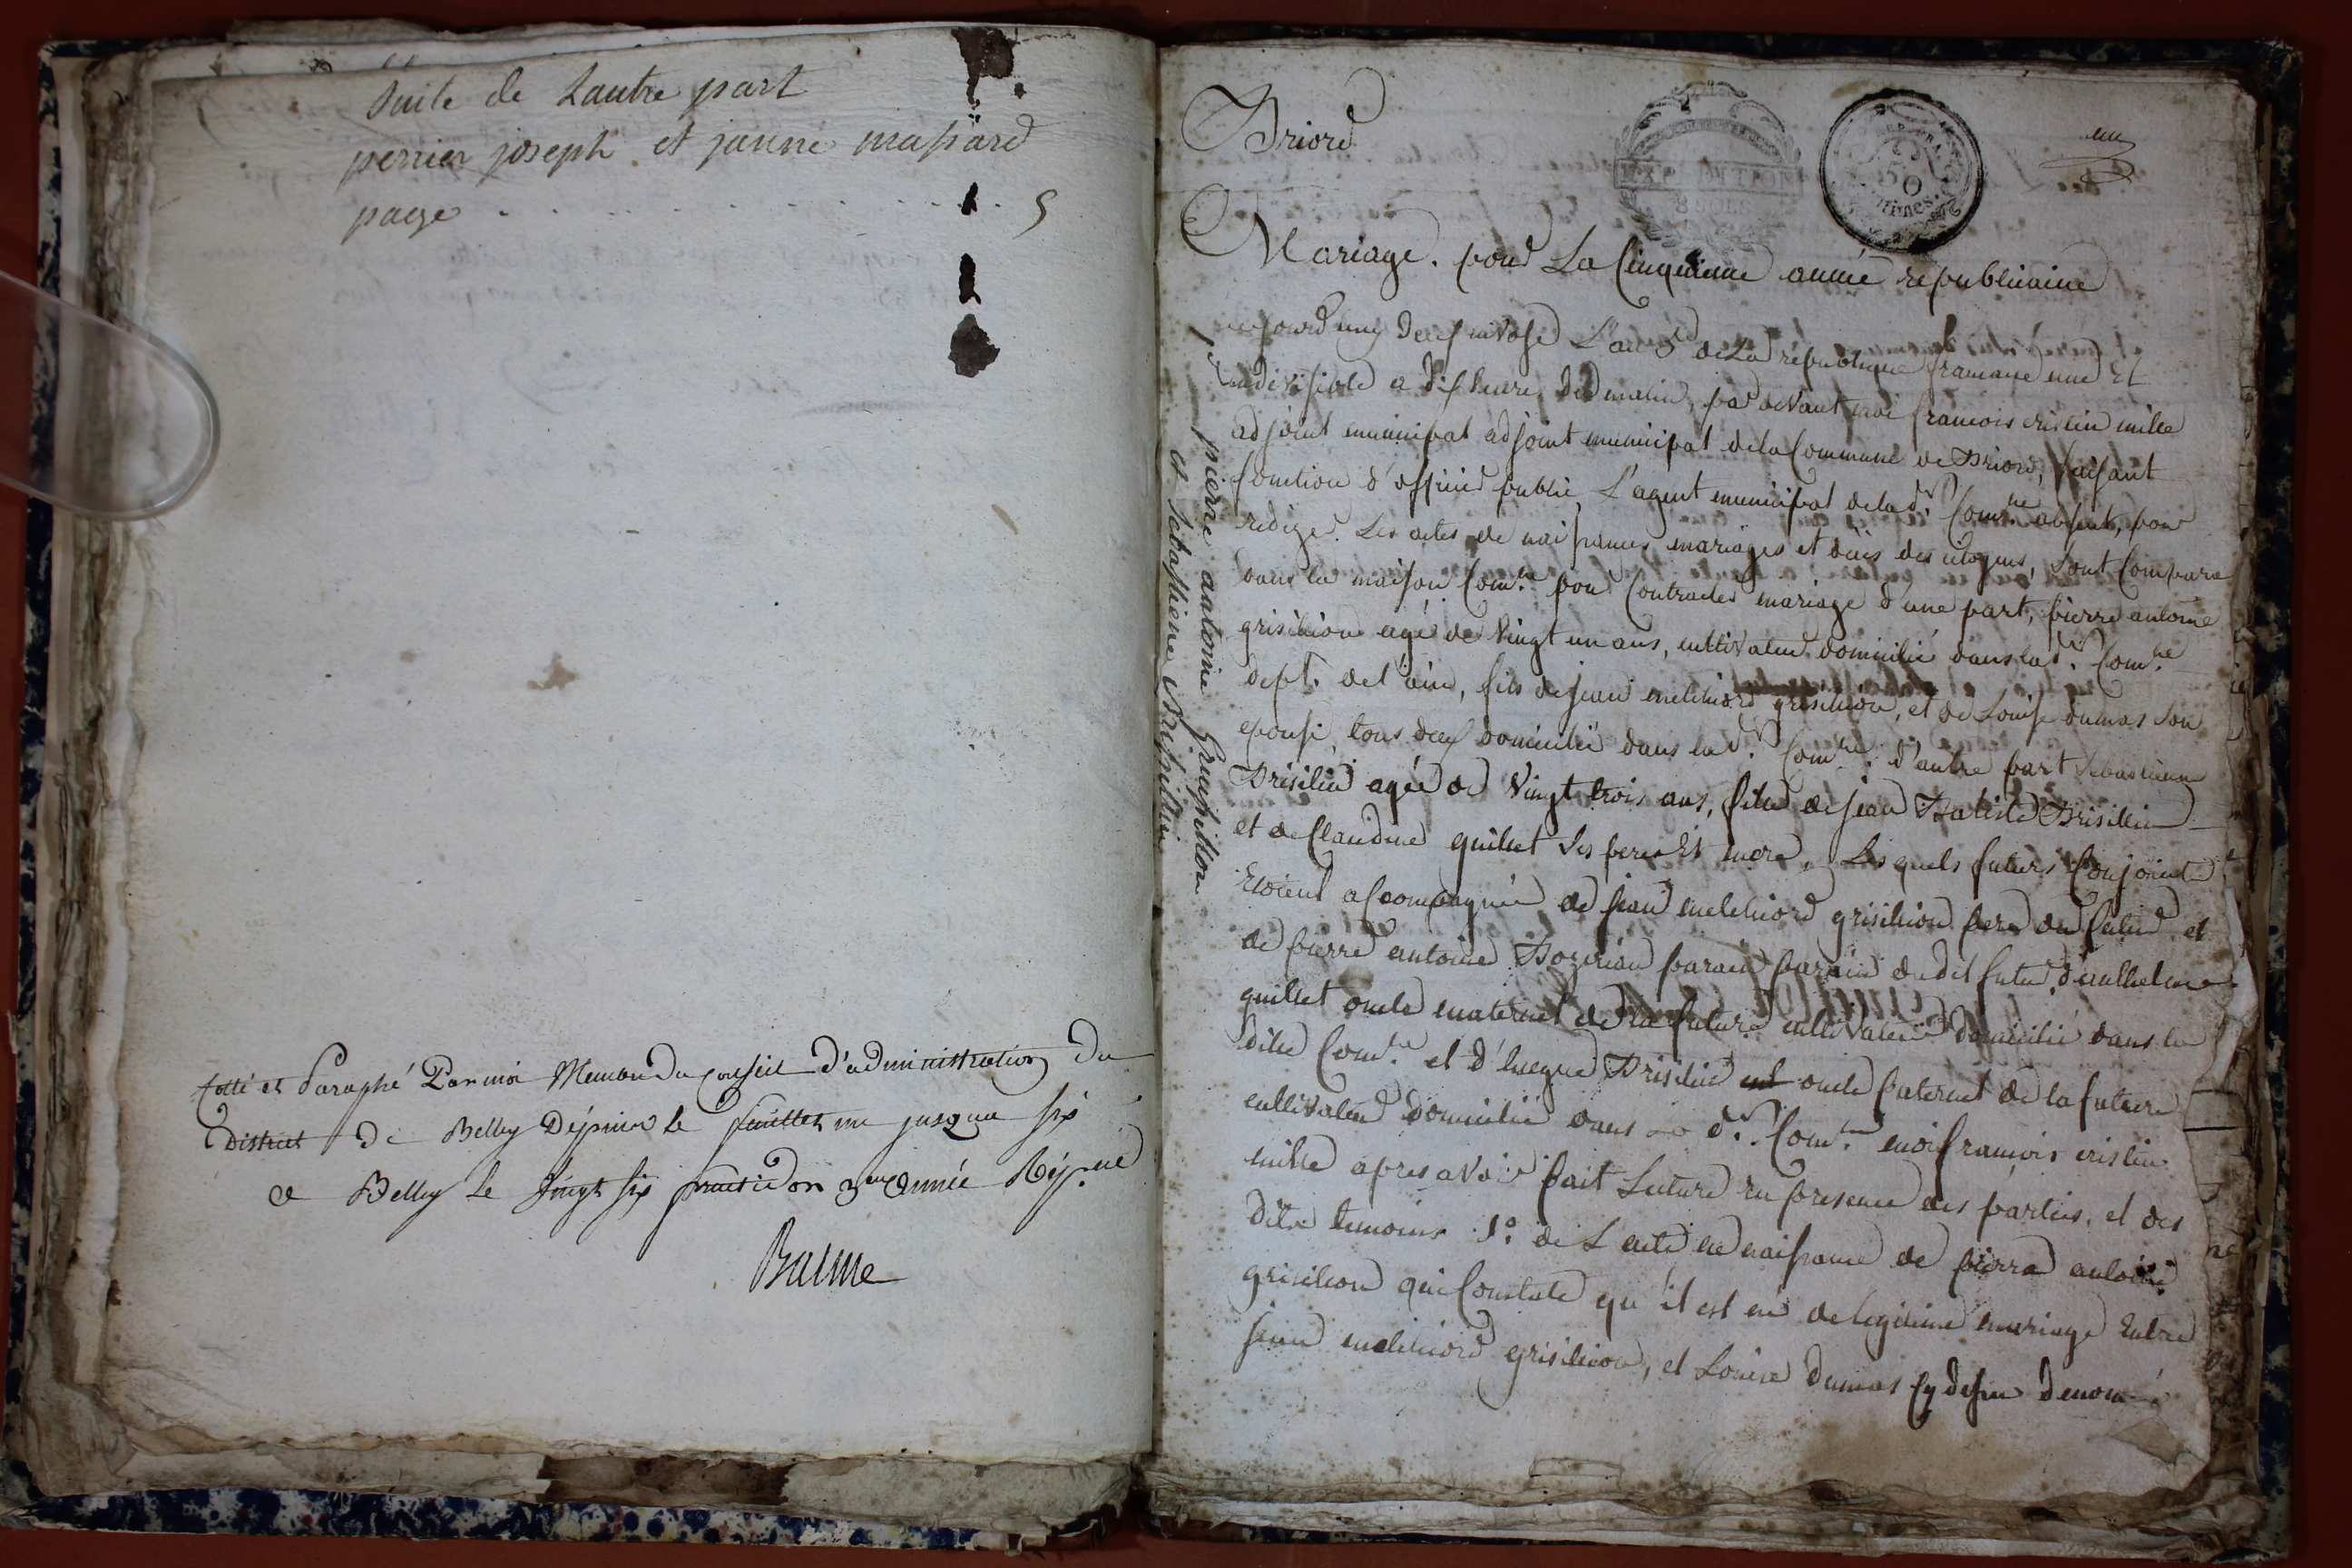 Suite de Lautre part
perrier joseph et janne massard
page . . . . . . . . . . 5
Cotté et Paraphé Par moi Membre du Conseil D'administration du
District de Belley Dépuis le feuillet un jusquau six
a Belley le Vingt six fructidor 3me année Rép.ne
Baume
Briord
un
EXPEDITION
8 SOLS
REP. FRA.
50
CENTIMES
Mariage. pour La Cinquieme année republicaine
1er pierre antoine Grisillon
et sebastiene Brisillin
aujourd'huy Deux L'an 5 de La republique francaise une Et
indivisible a dix heure du matin, par devant moi francois cristin mille
adjoint municipal adjoint municipal de la Commune de Briord, faisant
fonction d'officier public, L'agent municipal de lad. Com.ne absent, pour
rediger Les actes de naissances mariages et déces des citoyens, sont Comparu
dans la maison Com.ne pour Contracter mariage d'une part, pierre antoine
grisilion agé de Vingt un ans, cultivateur domicilié dans lad. Com.ne
dept. de l'ain, fils de jean melchiord grisilion, et de Louise dumas son
epouse, tous deux domicilié dans lad. Com.ne, d'autre part sebastienne
Brisilin agée de Vingt trois ans, fille de jean Batiste Brisilin
et de Claudine quillet Ses pere Et mere, Les quels futurs Conjoints
Etoient accompagnié de jean melchiord grisilion pere du futur et
de pierre antoine parain dudit futur, d'anthelme
quillet oncle maternel de la future cultivateur domicilié dans la
dite Com.ne et d' Brisilin oncle paternel de la future
cultivateur domicilié dans La d. Com.ne moi francois cristin
mille apres avoir fait Lecture en presence des parties, et des
dits temoins 1o. de L'acte de naissance de pierre antoine
grisilion qui Constate qu'il est né de legitime mariage Entre
jean melchiord grisilion, et Louise Dumas Cy dessu denommé